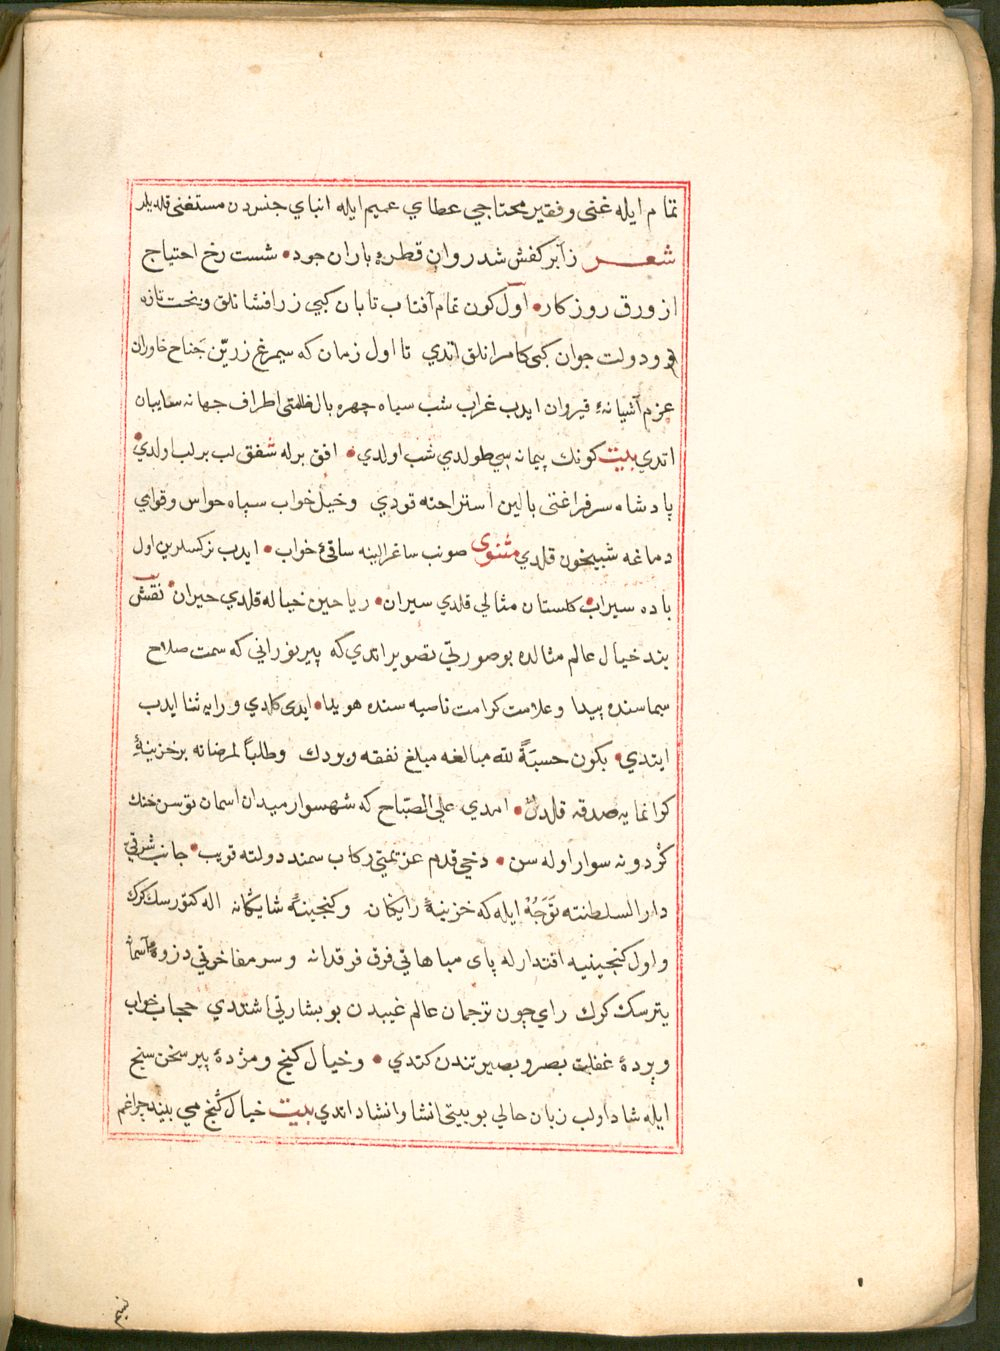 تمام ایله غنی و فقیر محتاجي عطاي عمیم ایله ابناي جنسدن مستغنی قلدیلر
شعر زابر کفش شد روان قطرهٔ باران جود • شست رخ احتیاج
از ورق روزکار • اول کون تمام آفتاب تابان کبي زرافشانلق و بخت تازه
و دولت جوان کبی کامرانلق اتدي تا اول زمان که سیمرغ زرین جناح خاوران
عزم آشیانهٔ قیروان ایدب غراب شب سیاه چهره بال ظلمتی اطراف جهانه سایبان
اتدي بیت کونك پیمانه سي طولدي شب اولدي • افق برله شفق لب بر لب اولدي •
پادشاه سر فراغتی بالین استراحته قودي وخیل خواب سپاه حواس و قواي
دماغه شبیخون قلدي مثنوی صونب ساغر الینه ساقیٔ خواب • ایدب نرکسلرین اول
باده سیراب • کلستان مثالي قلدي سیران • ریاحین خیاله قلدي حیران • نقش
بند خیال عالم مثالده بو صورتي تصویر اتدي که پیر نوراني که سمت صلاح
سیماسنده پیدا و علامت کرامت ناصیه سنده هویدا • ایدی کلدي و رایه ثنا ایدب
ایتدي • بکون حسبةً لله مبالغه مبلغ نفقه ویردك وطلباً لمرضاته بر خزینهٔ
کرانمایه صدقه قلدڭ • امدي علی الصّباح که شهسوار میدان اسمان توسن خنك
کردونه سوار اوله سن • دخي قدم عزیمتي رکاب سمند دولته قویب • جانب شرقي
دار السلطنته توَجُّه ایله که خزینهٔ رایکان و کنجینهٔ شایکانه اله کتورسك کرك
و اول کنجینیه اقتدارله پای مباهاتي فرق فرقدانه و سر مفاخرتي ذروهٔ آسمانه
یترسك کرك راي چون ترجمان عالم غیبدن بو بشارتي اشتدي حجاب خواب
و پردهٔ غفلت بصر و بصیرتندن کتدي • و خیال کنج و مژدهٔ پیر سخن سنج
ایله شاد اولب زبان حالي بو بیتی انشا و انشاد اتدي بیت خیال کنج مي بیند چراغم